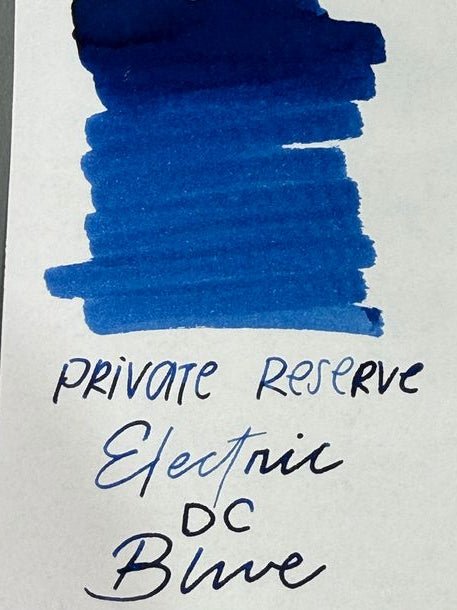 PRIVATE RESERVE
Electric
DC
Blue